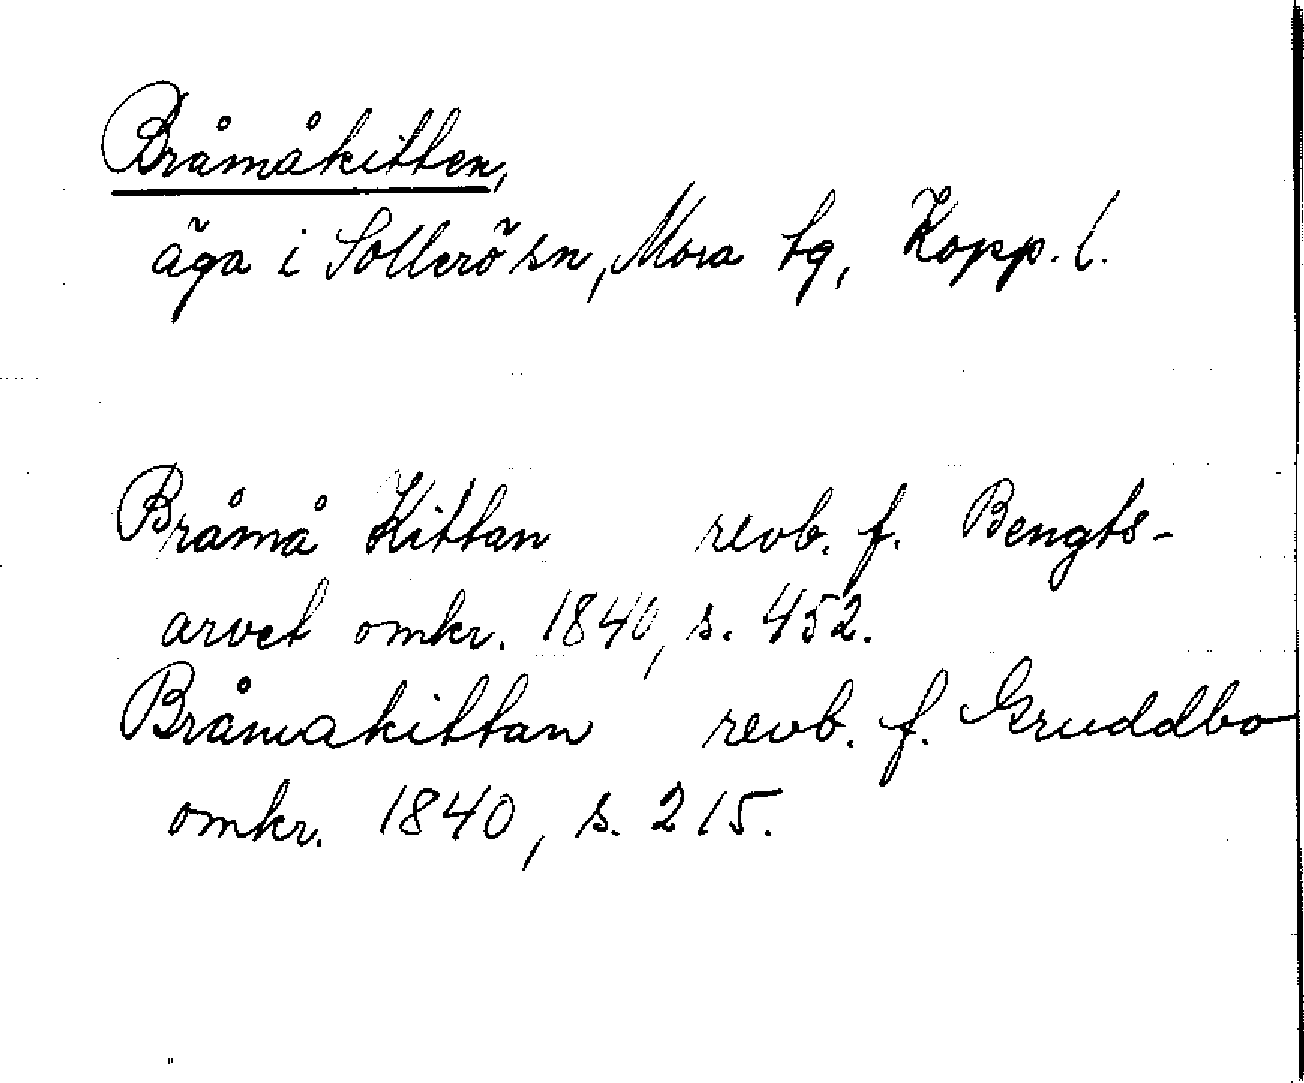 Bråmåkitten,
äga i Sollerö sn, Mora tg, Kopp. l.
Bråmå Kittan revb. f. Bengts-
arvet omkr. 1840, s. 452.
Bråmakittan revb. f. Gruddbo
omkr. 1840, s. 215.